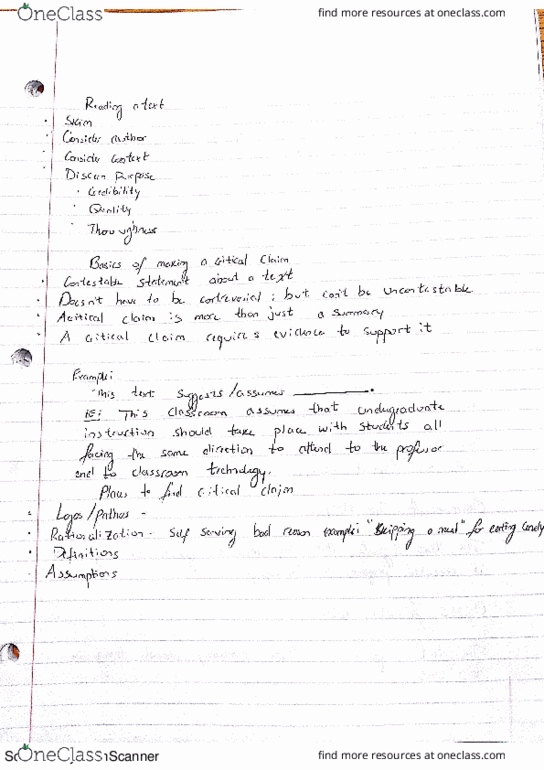 OneClass find more resources at oneclass.com
Reading a text
• Skim
• Consider Author
• Consider Context
• Discern Purpose
• Credibility
• Quality
• Thoroughness
Basics of making a critical claim
• Contestable statement about a text
• Doesn't have to be contreversial; but can't be uncontestable
• A critical claim is more than just a summary
• A critical claim requires evidence to support it
Example:
"This text: suggests/assumes ________.
IE: This classroom assumes that undergraduate
instruction should take place with students all
facing the same direction to attend to the professor
and to classroom technology.
Places to find critical claim
• Logos/Pathos -
• Rationalization - Self serving bad reason example: "Skipping a meal" for eating candy
• Definitions
• Assumptions
OneClass Scanner find more resources at oneclass.com